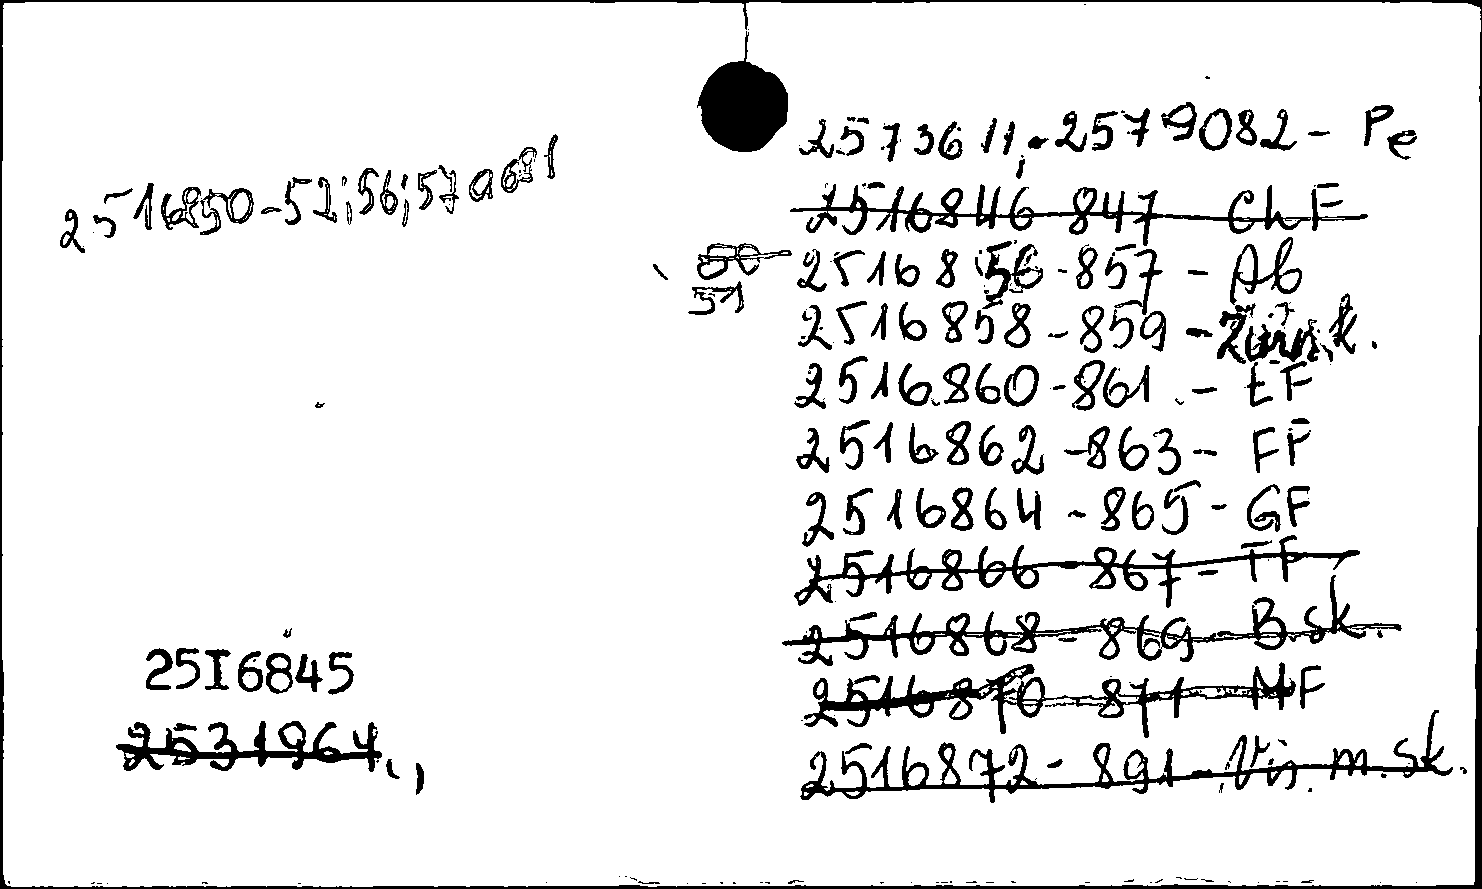 2516850-52;56;57
2516845
2531964.,
2573611,-2579082- Pe
2516846-847 ChF
50
51
2516856-857 - Ab
2516858-859 -
2516860-861 - EF
2516862-863- FF
2516864-865- GF
2516866-867- TF
2516868-869- B.sk.
2516870-871 MF
2516872-891- Vis. m.sk.